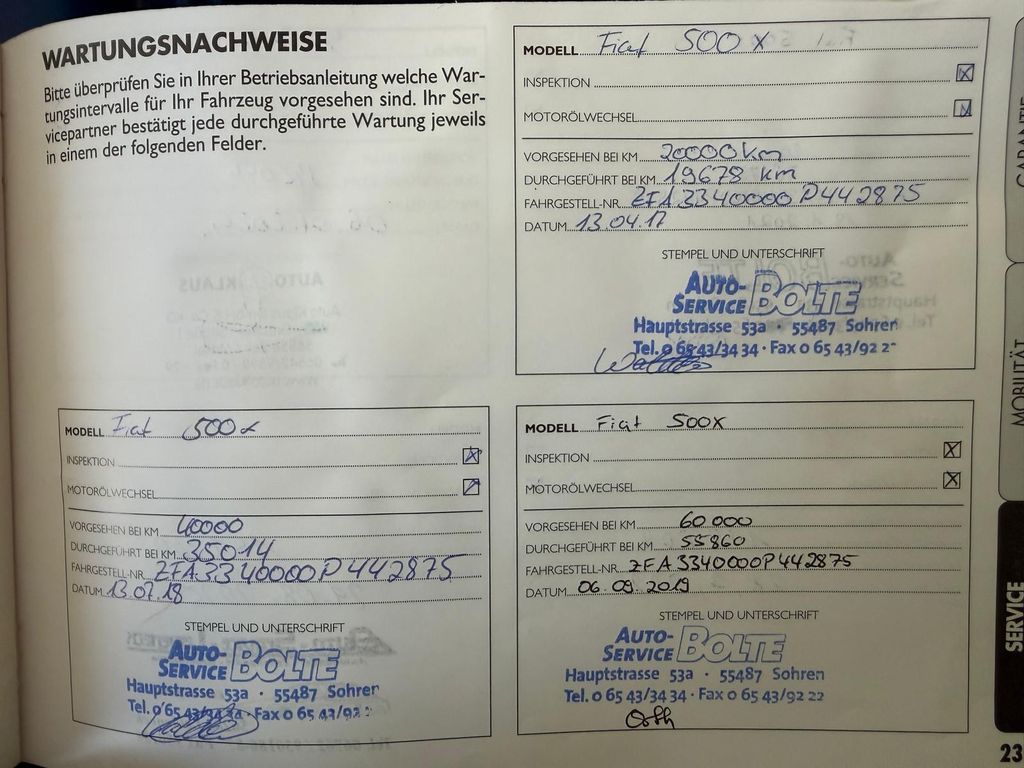 WARTUNGSNACHWEISE
Bitte überprüfen Sie in Ihrer Betriebsanleitung welche War-
tungsintervalle für Ihr Fahrzeug vorgesehen sind. Ihr Ser-
vicepartner bestätigt jede durchgeführte Wartung jeweils
in einem der folgenden Felder.
MODELL Fiat 500 X
INSPEKTION X
MOTORÖLWECHSEL X
VORGESEHEN BEI KM 20000 km
DURCHGEFÜHRT BEI KM 19678 km
FAHRGESTELL-NR. ZFA3340000P442875
DATUM 13.04.17
STEMPEL UND UNTERSCHRIFT
AUTO-
SERVICE BOLTE
Hauptstrasse 53a · 55487 Sohren
Tel. 0 65 43/34 34 · Fax 0 65 43/92 2
MODELL Fiat 500x
INSPEKTION X
MOTORÖLWECHSEL
VORGESEHEN BEI KM 40000
DURCHGEFÜHRT BEI KM 35014
FAHRGESTELL-NR. ZFA3340000P442875
DATUM 13.07.18
STEMPEL UND UNTERSCHRIFT
AUTO-
SERVICE BOLTE
Hauptstrasse 53a · 55487 Sohren
Tel. 0 65 43/34 34 · Fax 0 65 43/92 2
MODELL Fiat 500X
INSPEKTION X
MOTORÖLWECHSEL X
VORGESEHEN BEI KM 60 000
DURCHGEFÜHRT BEI KM 55860
FAHRGESTELL-NR. ZFA3340000P442875
DATUM 06.09.2019
STEMPEL UND UNTERSCHRIFT
AUTO-
SERVICE BOLTE
Hauptstrasse 53a · 55487 Sohren
Tel. 0 65 43/34 34 · Fax 0 65 43/92 22
GARANTIE
MOBILITÄT
SERVICE
23